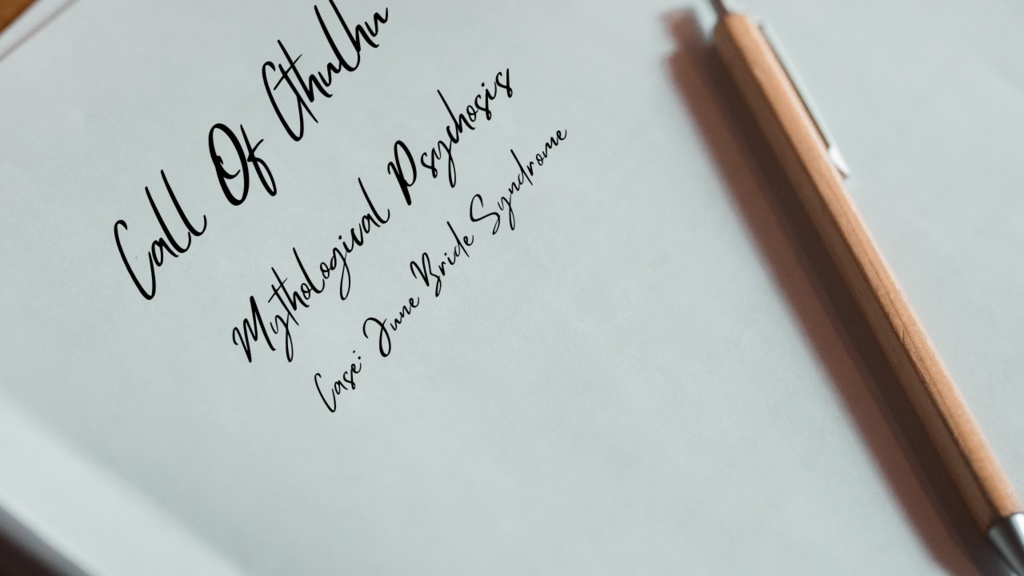 Call Of Cthulhu
Mythological Psychosis
Case: June Bride Syndrome